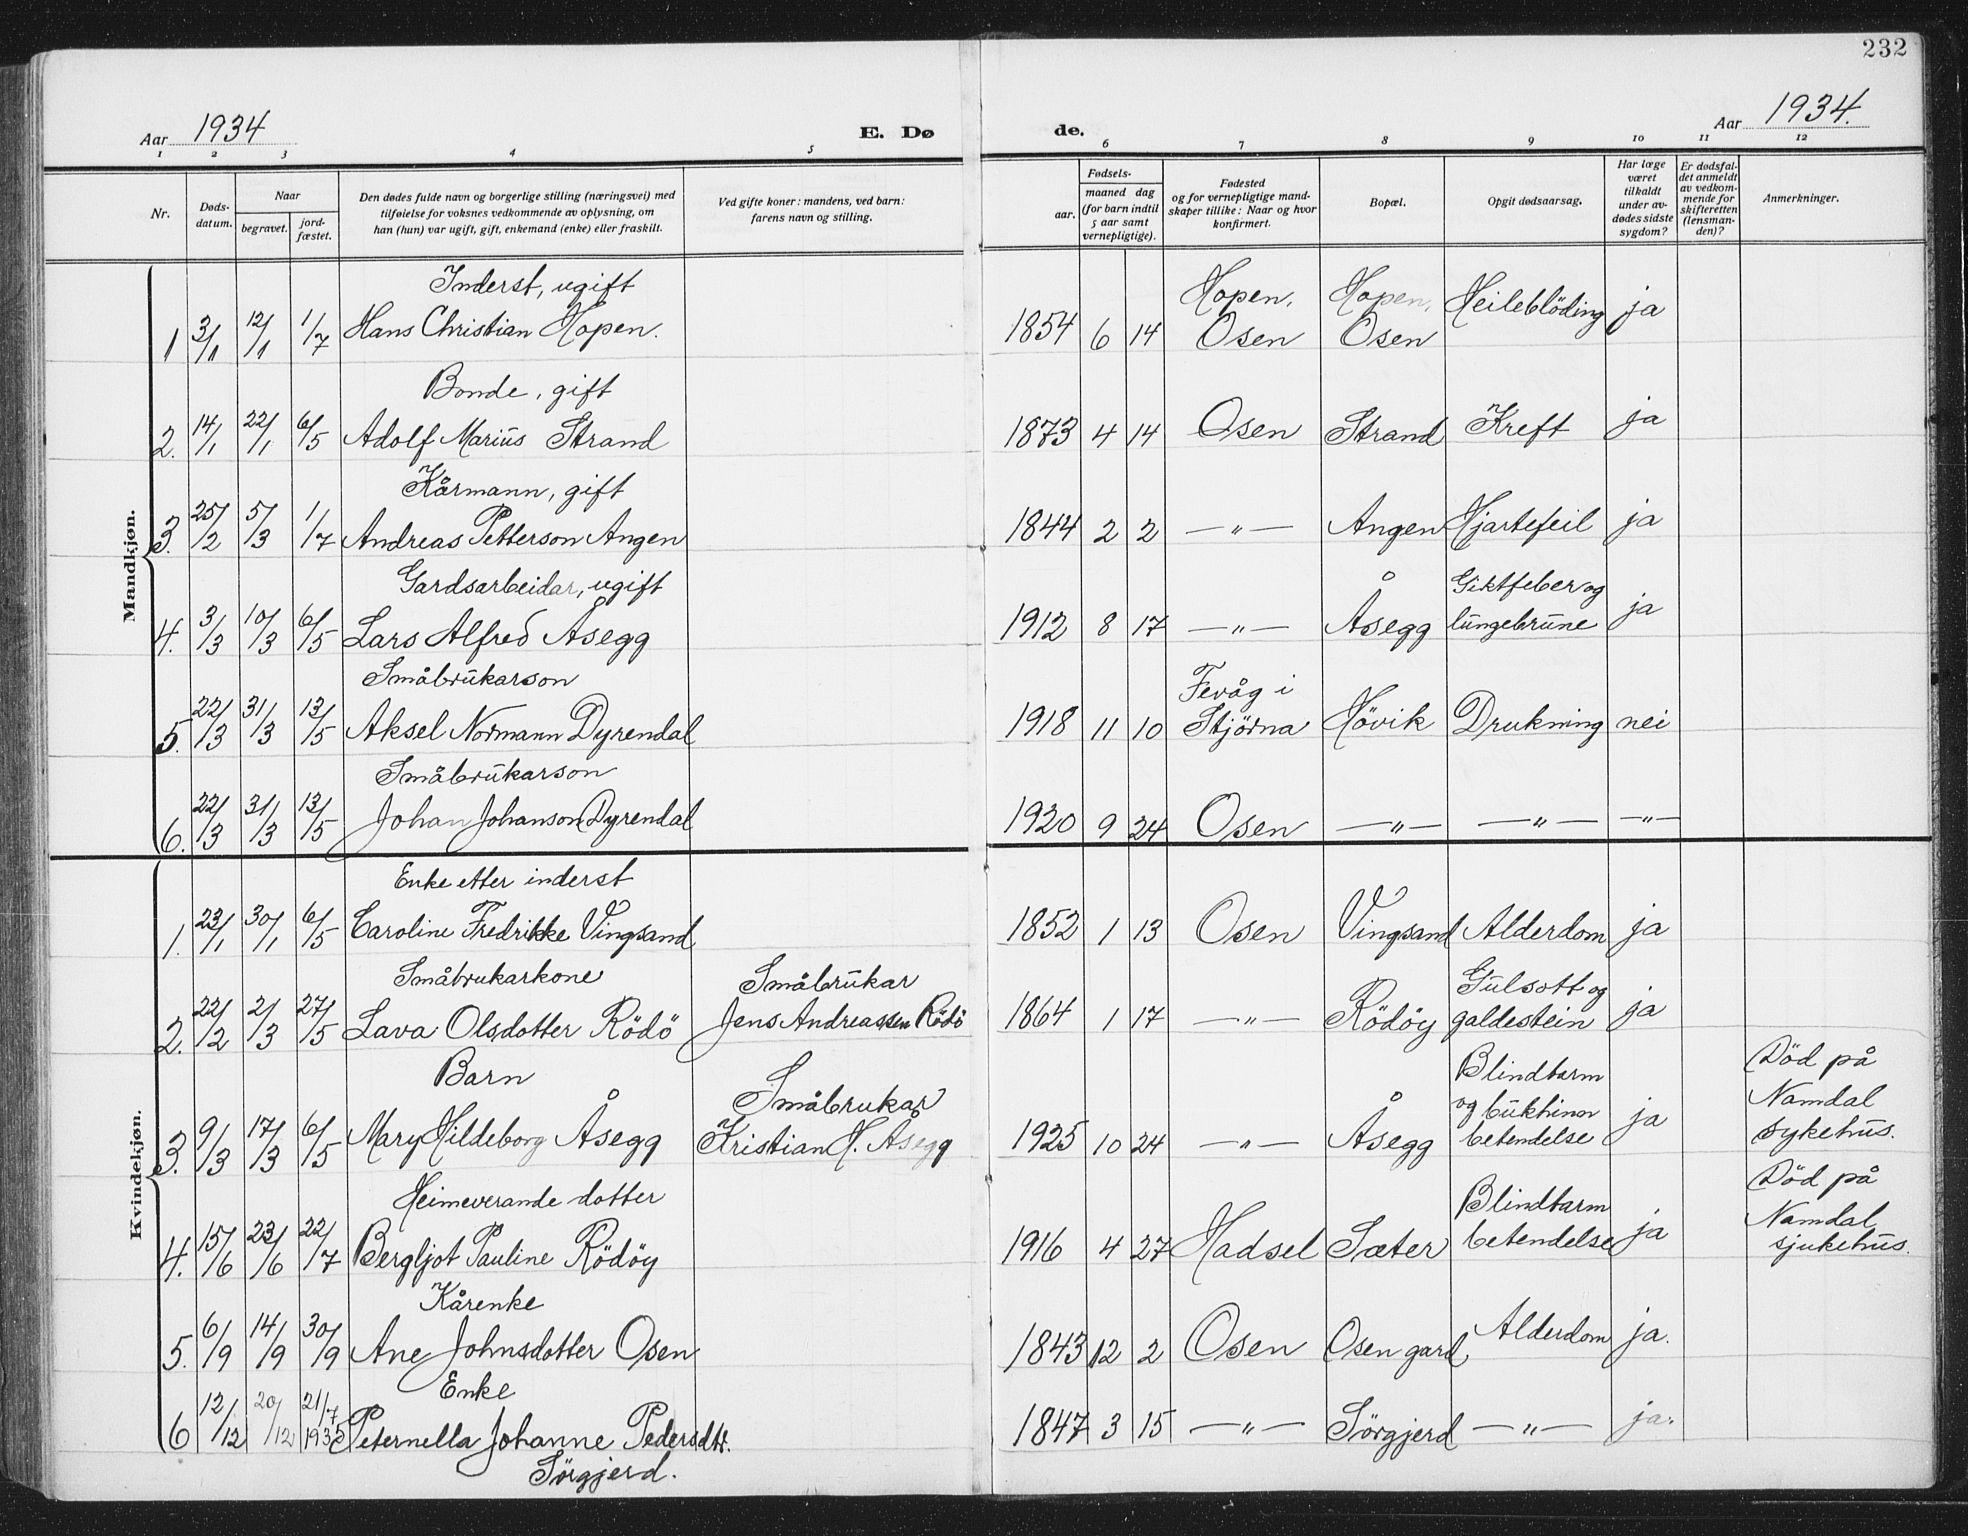 232
Aar 1934
E. Dø
de.
Aar 1934.
1 2 3 4 5 6 7 8 9 10 11 12
Nr.
Døds-
datum.
Naar
begravet.
jord-
fæstet.
Den dødes fulde navn og borgerlige stilling (næringsvei) med
tilføielse for voksnes vedkommende av oplysning, om
han (hun) var ugift, gift, enkemand (enke) eller fraskilt.
Ved gifte koner: mandens, ved barn:
farens navn og stilling.
Fødsels-
aar.
maaned dag
(for barn indtil
5 aar samt
vernepligtige).
Fødested
og for vernepligtige mand-
skaper tillike: Naar og hvor
konfirmert.
Bopæl.
Opgit dødsaarsag.
Har læge
været
tilkaldt
under av-
dødes sidste
sygdom?
Er dødsfal-
det anmeldt
av vedkom-
mende for
skifteretten
(lensman-
den)?
Anmerkninger.
Mandkjøn.
Inderst, ugift Hopen, Hopen,
1 3/1 12/1 1/7 Hans Christian Hopen. 1854 6 14 Osen Osen Heileblöding ja
Bonde, gift
2. 14/1 22/1 6/5 Adolf Marius Strand 1873 4 14 Osen Strand Kreft ja
Kårmann, gift
3. 25/2 5/3 1/7 Andreas Petterson Angen 1844 2 2 —"— Angen Hjartefeil ja
Gardsarbeidar, ugift Giktfeber og
4. 3/3 10/3 6/5 Lars Alfred Åsegg 1912 8 17 —"— Åsegg lungebrune ja
Småbrukarson Fevåg i
5. 22/3 31/3 13/5 Aksel Normann Dyrendal 1918 11 10 Stjörna Hövik Drukning nei
Småbrukarson
6. 22/3 31/3 13/5 Johan Johanson Dyrendal 1920 9 24 Osen —"— —"— —"—
Kvindekjøn.
Enke etter inderst
1. 23/1 30/1 6/5 Caroline Fredrikke Vingsand 1852 1 13 Osen Vingsand Alderdom ja
Småbrukarkone Småbrukar Gulsott og
2. 22/2 2/3 27/5 Lava Olsdotter Rödö Jens Andreassen Rödö 1864 1 17 —"— Rödöy galdestein ja
Barn Småbrukar Blindtarm Död på
og bukhinn Namdal
3. 9/3 17/3 6/5 Mary Hildeborg Åsegg Kristian H. Åsegg 1925 10 24 —"— Åsegg betendelse ja sykehus.
Heimeverande dotter Blindtarm Död på
Namdal
4. 15/6 23/6 22/7 Bergljot Pauline Rödöy 1916 4 27 Hadsel Sæter betendelse ja sjukehus.
Kårenke
5. 6/9 14/9 30/9 Ane Johnsdotter Osen 1843 12 2 Osen Osen gard Alderdom ja.
Enke
6 12/12 20/12 21/7 1935 Peternella Johanne Pedersdtr. 1847 3 15 —"— Sörgjerd —"— ja.
Sörgjerd.